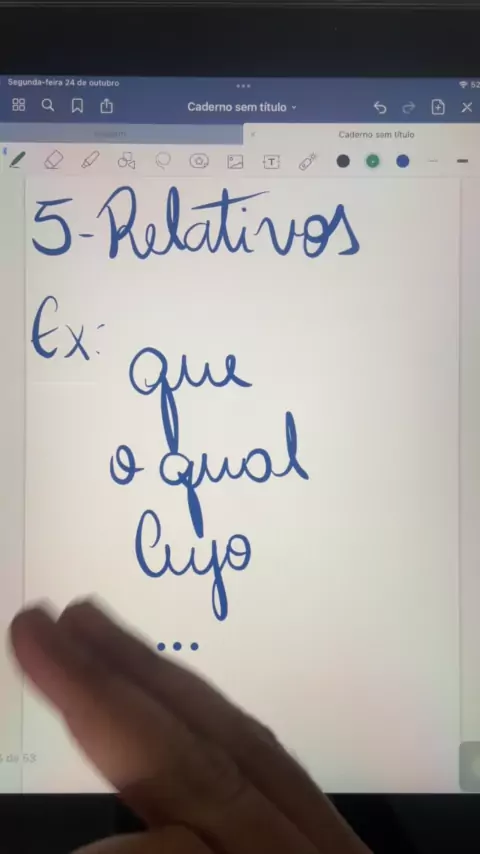 Segunda-feira 24 de outubro
52
Caderno sem título
Caderno sem título
T
5-Relativos
Ex:
que
o qual
Cujo
...
de 53